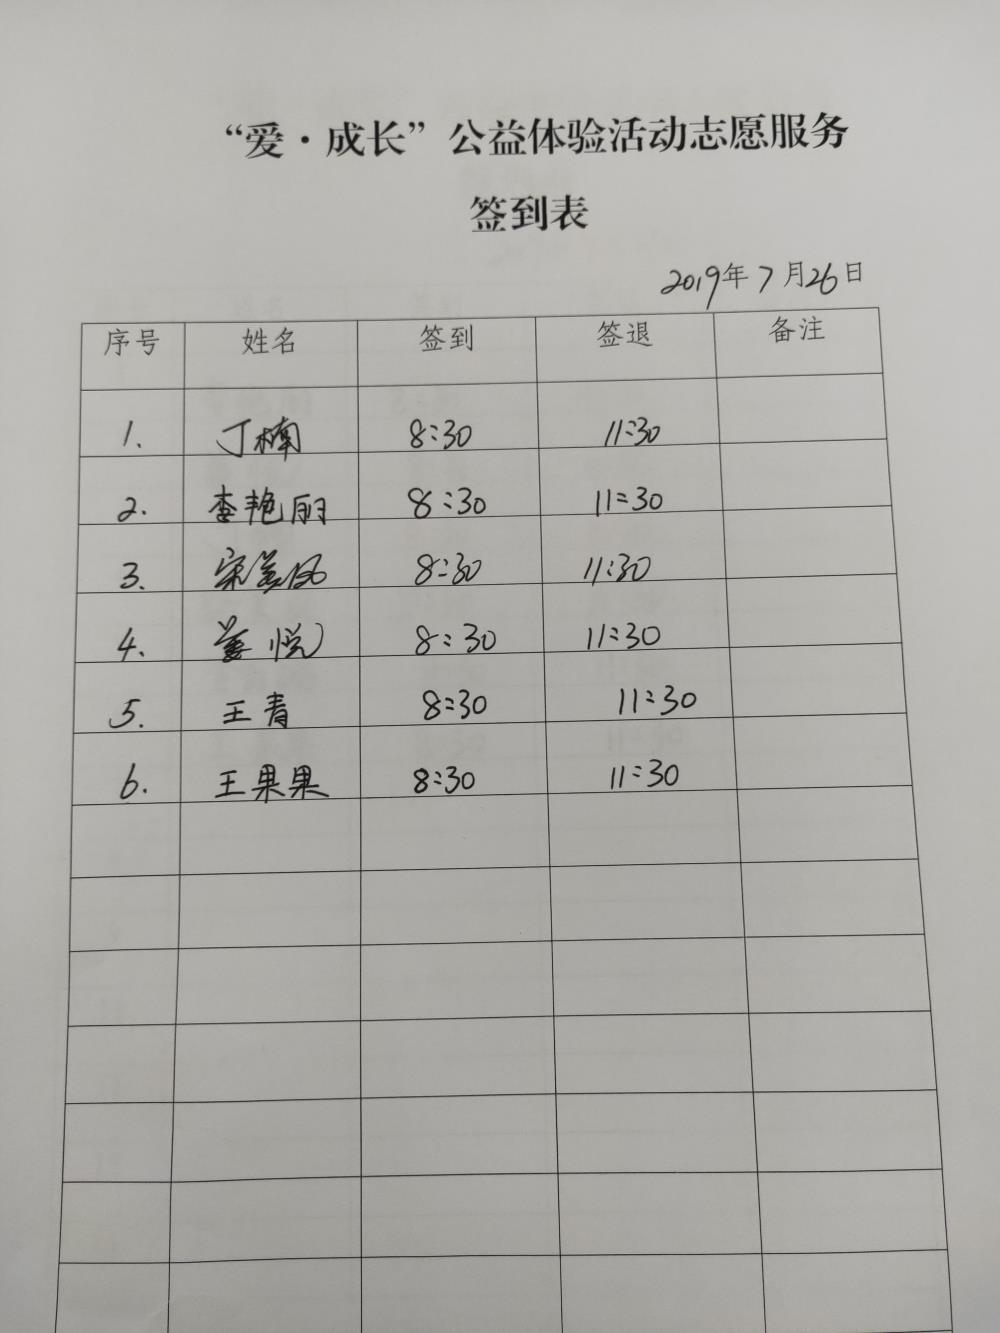 “爱·成长”公益体验活动志愿服务
签到表
2019年7月26日
序号 姓名 签到 签退 备注
1. 丁楠 8:30 11:30
2. 李艳丽 8:30 11:30
3. 宋 8:30 11:30
4. 董悦 8:30 11:30
5. 王青 8:30 11:30
6. 王果果 8:30 11:30